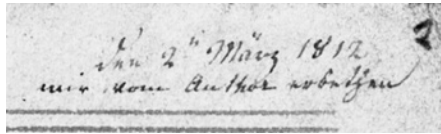 den 2ⁿ März 1812
mir vom Author erbethen